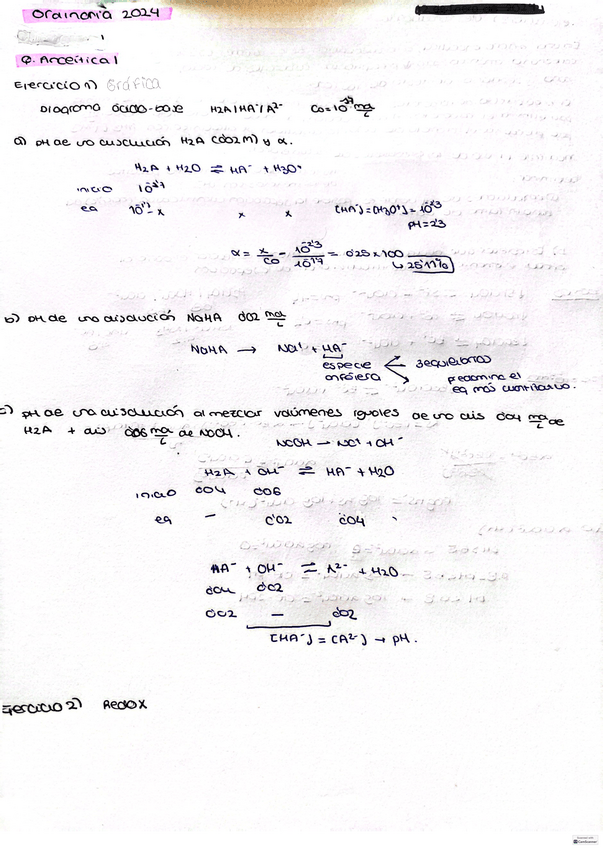 Ordinaria 2024
Q. Analítica I
Ejercicio 1) Gráfica
Diagrama ácido-base H2A/HA⁻/A²⁻ Co=10^-1'7 mol/L
a) pH de una disolución H2A (0'02M) y α.
H2A + H2O ⇌ HA⁻ + H3O⁺
inicio 10^-1'7
eq 10^-1'7 - x x x [HA⁻]=[H3O⁺]=10^-2'3
pH=2'3
α = x/Co = 10^-2'3/10^-1'7 = 0'25 x 100
↳ 25'11%
b) pH de una disolución NaHA 0'02 mol/L
NaHA → Na⁺ + HA⁻
especie 3 equilibrios
anfótera predomina el
eq más cuantitativo.
c) pH de una disolución al mezclar volúmenes iguales de una dis 0'04 mol/L de
H2A + dis 0'06 mol/L de NaOH.
NaOH → Na⁺ + OH⁻
H2A + OH⁻ ⇌ HA⁻ + H2O
inicio 0'04 0'06
eq — 0'02 0'04
HA⁻ + OH⁻ ⇌ A²⁻ + H2O
0'04 0'02
0'02 — 0'02
[HA⁻] = [A²⁻] → pH.
Ejercicio 2) Redox
CamScanner